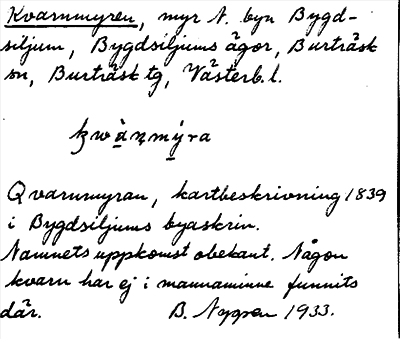 Kvarnmyren, myr N. byn Bygd-
siljum, Bygdsiljums ägor, Burträsk
sn, Burträsk tg, Västerb. l.
kwàṇmýra
Qvarnmyran, kartbeskrivning 1839
i Bygdsiljums byaskrin.
Namnets uppkomst obekant. Någon
kvarn har ej i mannaminne funnits
där. B. Nygren 1933.